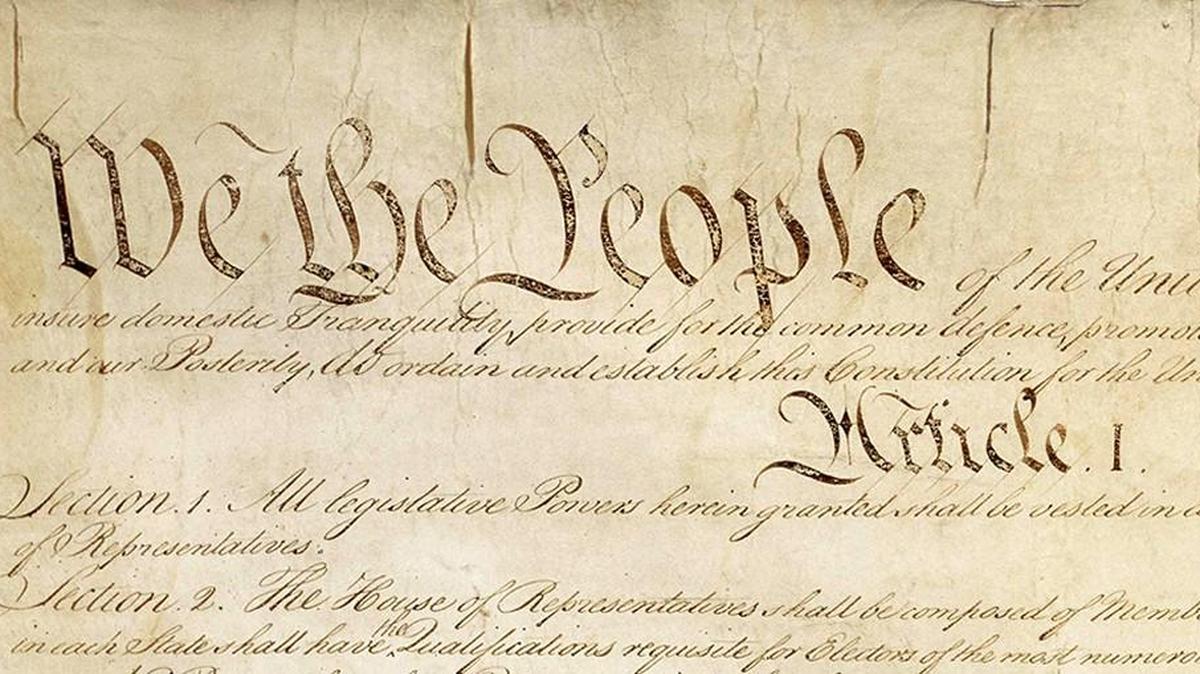 We the People of the Uni
insure domestic Tranquility, provide for the common defence, promo
and our Posterity, do ordain and establish this Constitution for the Un
Article. I.
Section. 1. All legislative Powers herein granted shall be vested in a
of Representatives.
Section. 2. The House of Representatives shall be composed of Memb
in each State shall have the Qualifications requisite for Electors of the most numero